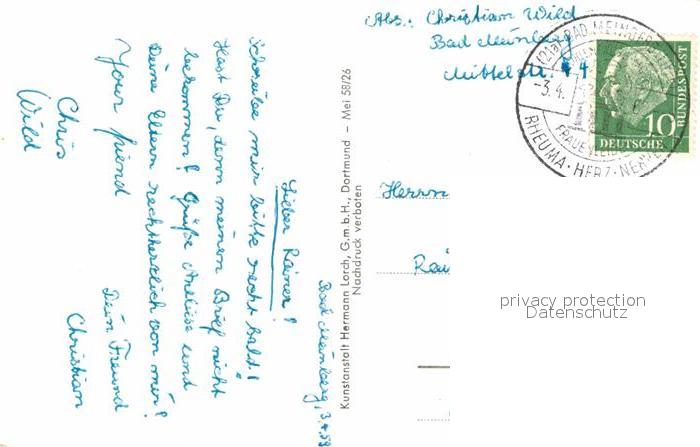 Abs.: Christian Wild
Bad Meinberg
Mittelstr. 4
(21a) BAD MEINBERG
-3.4.
FRAUENLEIDEN
RHEUMA · HERZ · NERVEN
10
DEUTSCHE
BUNDESPOST
Herrn
Rai
privacy protection
Datenschutz
Kunstanstalt Hermann Lorch, G.m.b.H., Dortmund – Mei 58/26
Nachdruck verboten
Bad Meinberg, 3.4.59
Lieber Rainer!
Schreibe mir bitte recht bald!
Hast Du, denn meinen Brief nicht
bekommen? Grüße Aneliese und
Deine Eltern rechtherzlich von mir!
Dein Freund
Christian
Your friend
Chris
Wild